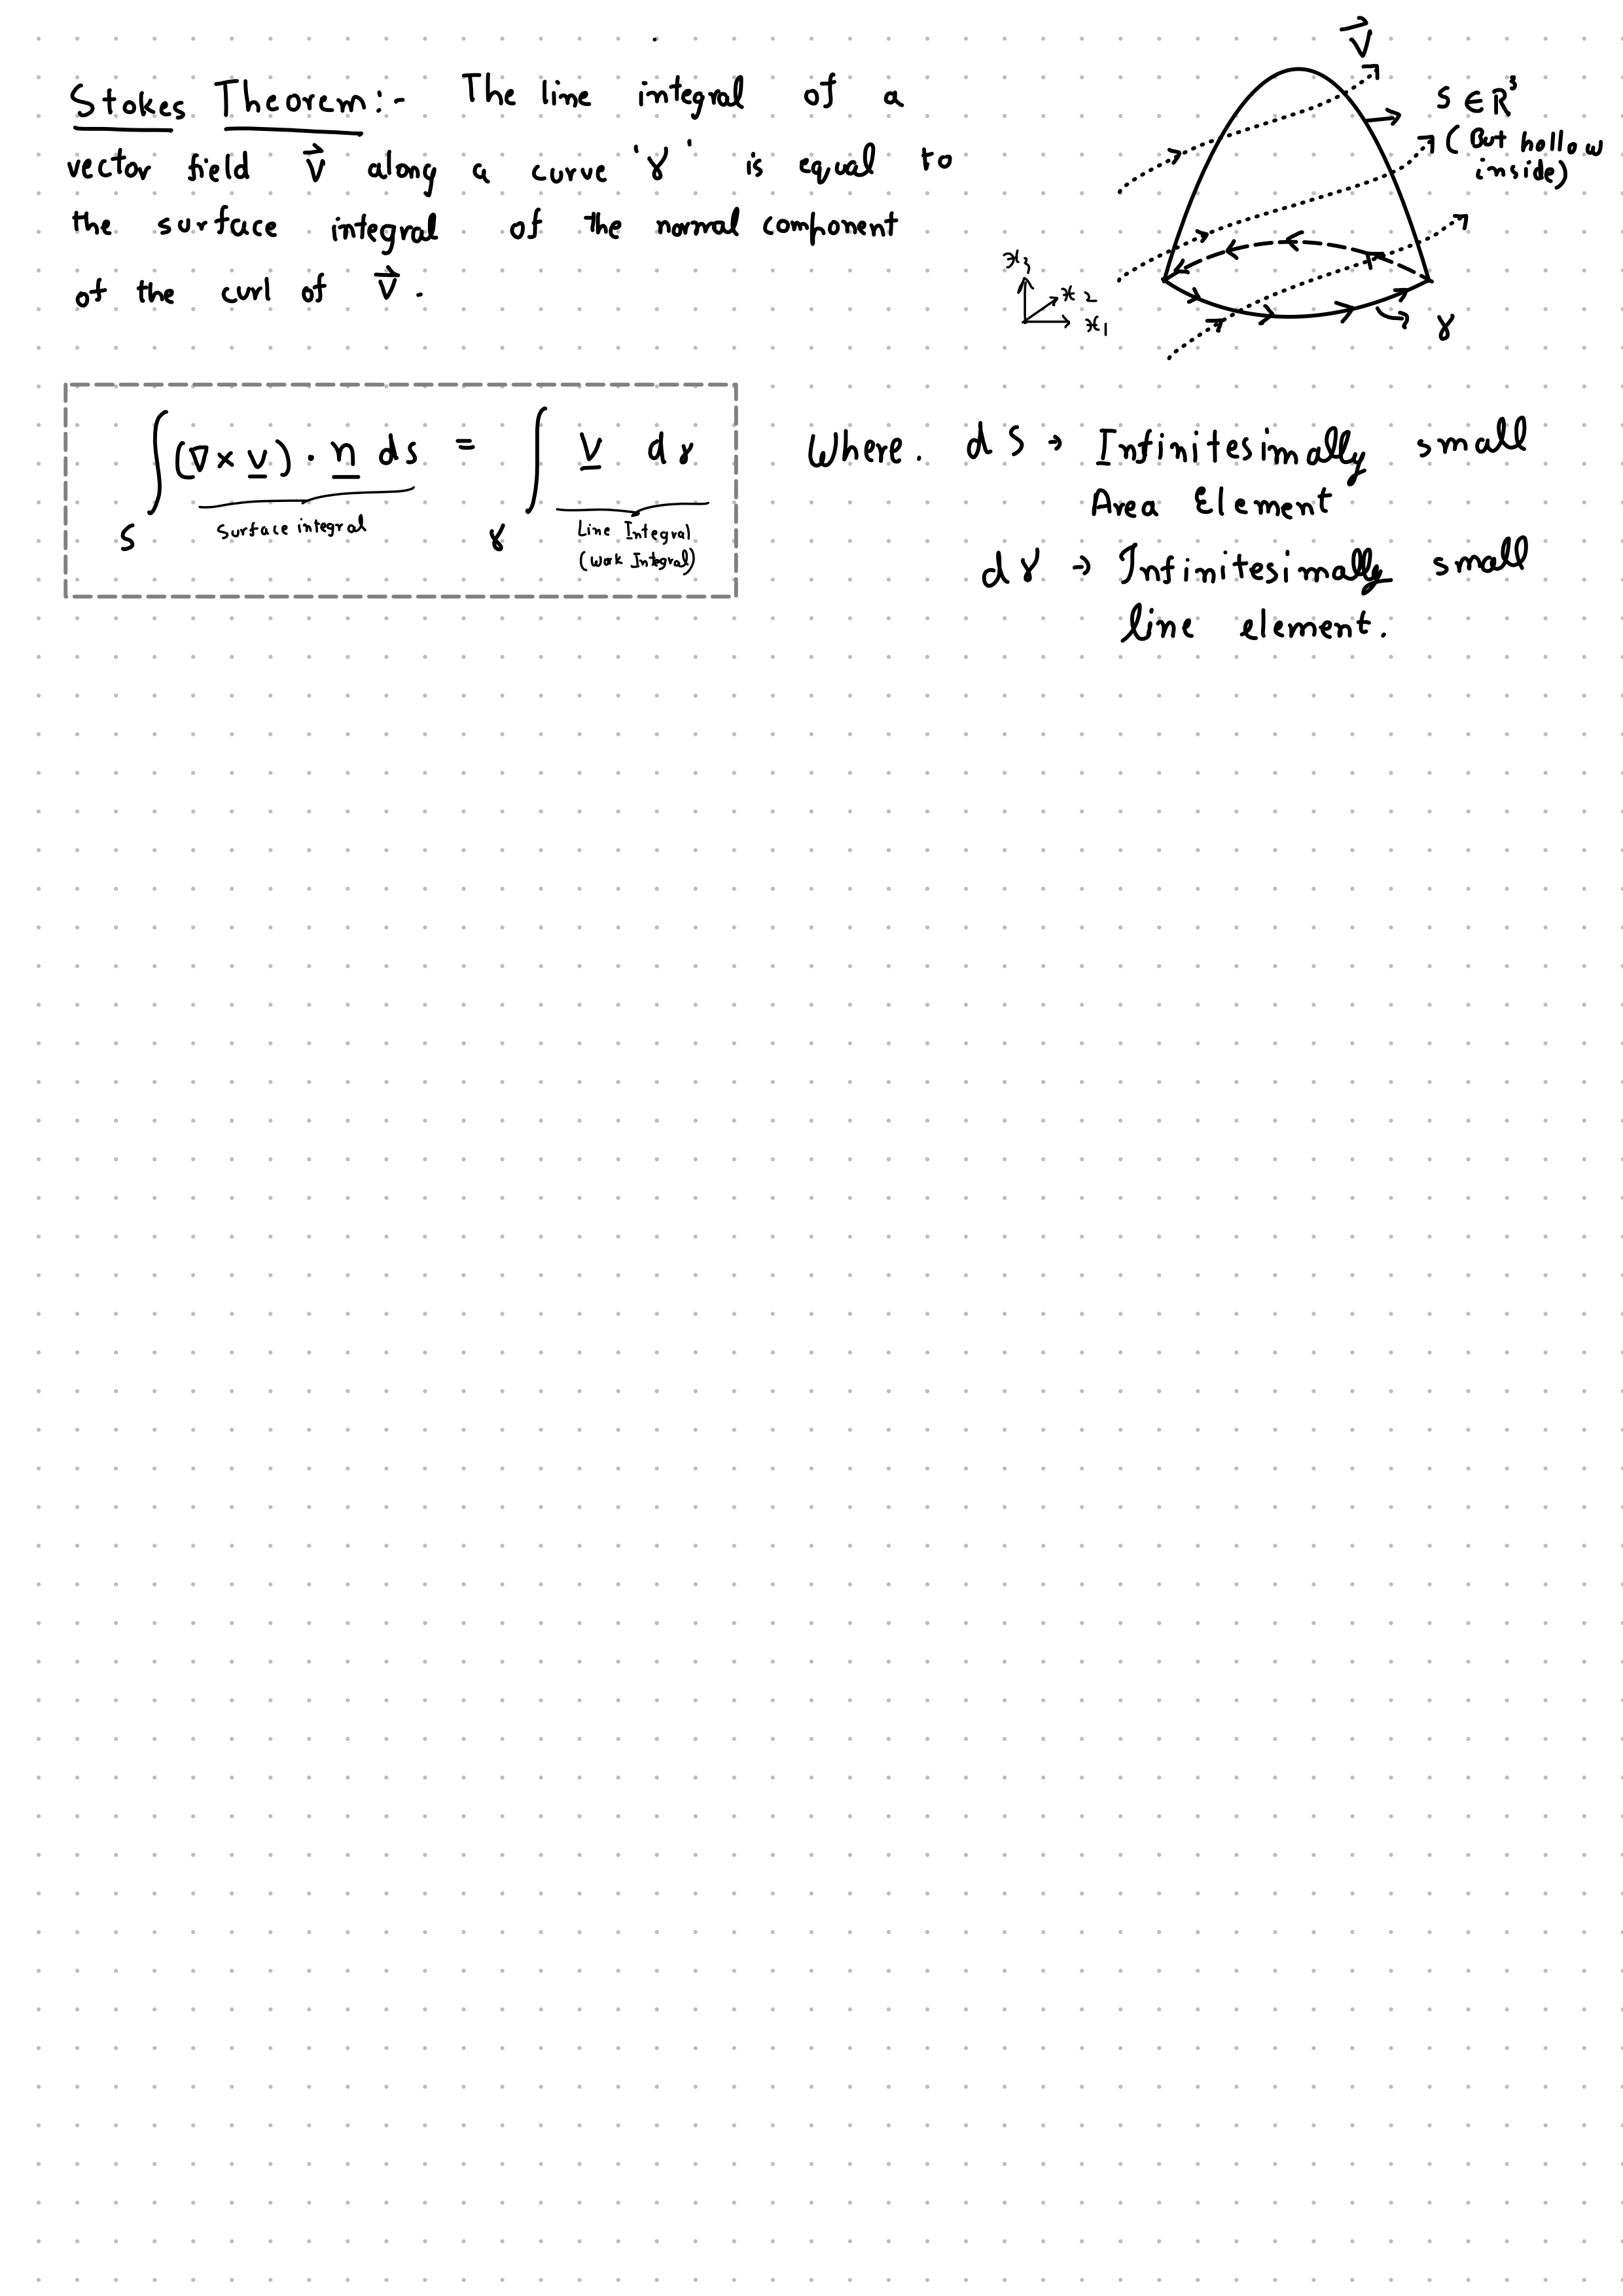 Stokes Theorem:- The line integral of a
vector field V⃗ along a curve 'γ' is equal to
the surface integral of the normal component
of the curl of V⃗.
V⃗
S ∈ ℝ³
(But hollow
inside)
x₃
x₂
x₁
γ
∫ (∇ × v) · n ds = ∫ v dγ
S γ
Surface integral
Line Integral
(Work Integral)
Where. dS → Infinitesimally small
Area Element
dγ → Infinitesimally small
line element.